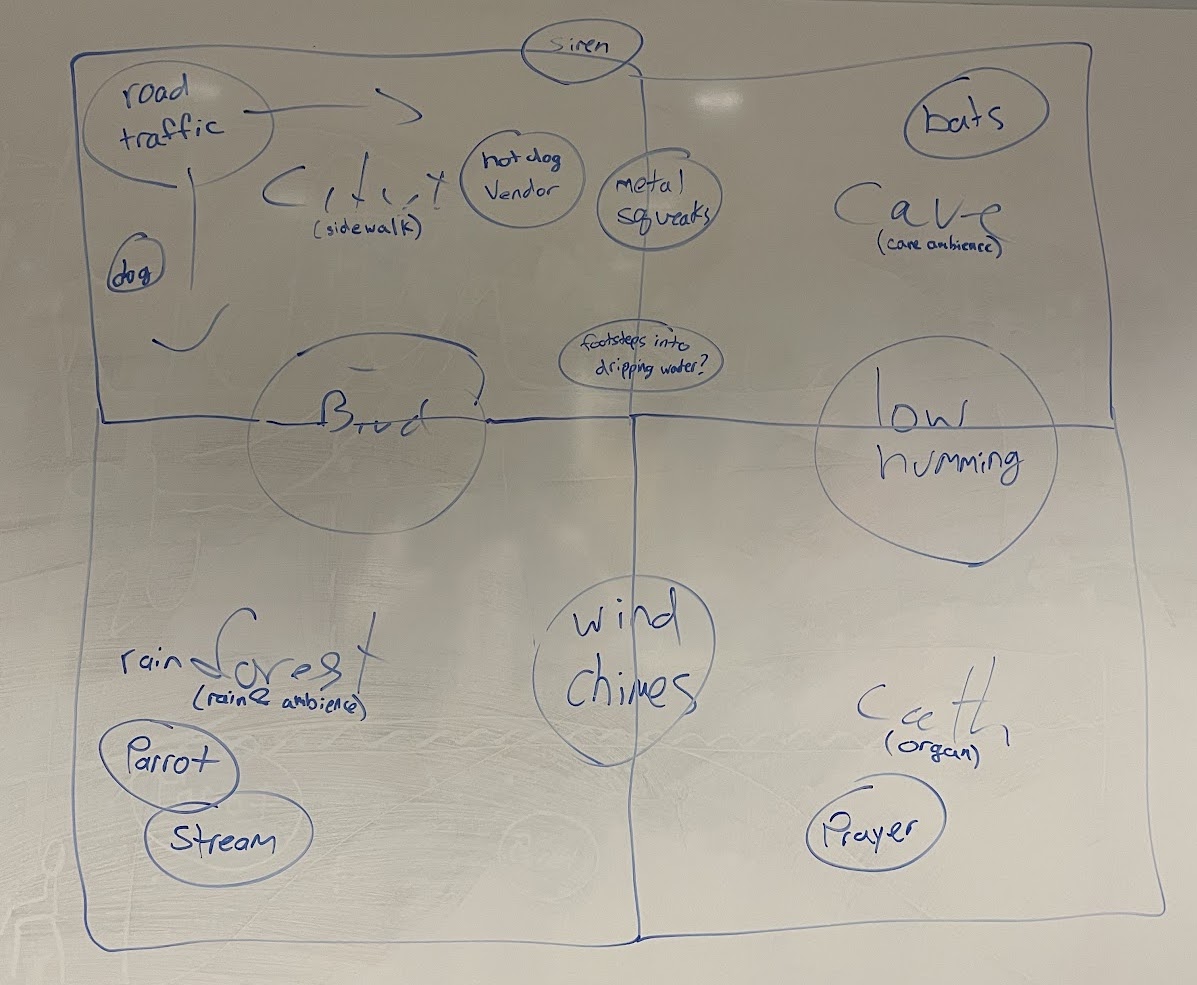 siren
road
traffic
hot dog
vendor
metal
squeaks
bats
City
(sidewalk)
Cave
(cave ambience)
dog
footsteps into
dripping water?
Bird
low
humming
wind
chimes
rainforest
(rain & ambience)
Parrot
Stream
Cath
(organ)
Prayer